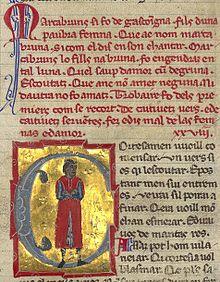 Marcabruns si fo de gascoigna fils duna
paubra femna. Que ac nom marca
bruna. si com el dis en son chantar. Mar
cabruns lo fills na bruna. fo engendratz
en tal luna. Quel saup damor cum degruna.
Escoutatz. Que anc non amet neguna. ni
dautra no fo amatz. Trobaire fo dels pre
miers com se recort. De caitiuetz uers et de
caitiuetz seruentes. fez e dis mal de las fem
nas e damor. XXVIII.
Cortesamen uuoill co
mensar. un uers si
es qui lescoutar. E pos
tant men sui entrem
es. ueirai sil porai a
finar. Queu uuoill mon
chan esmerar. E dirai
uos de mantas res.
hom uila
neiar. Qui cortesia uol
blasmar.